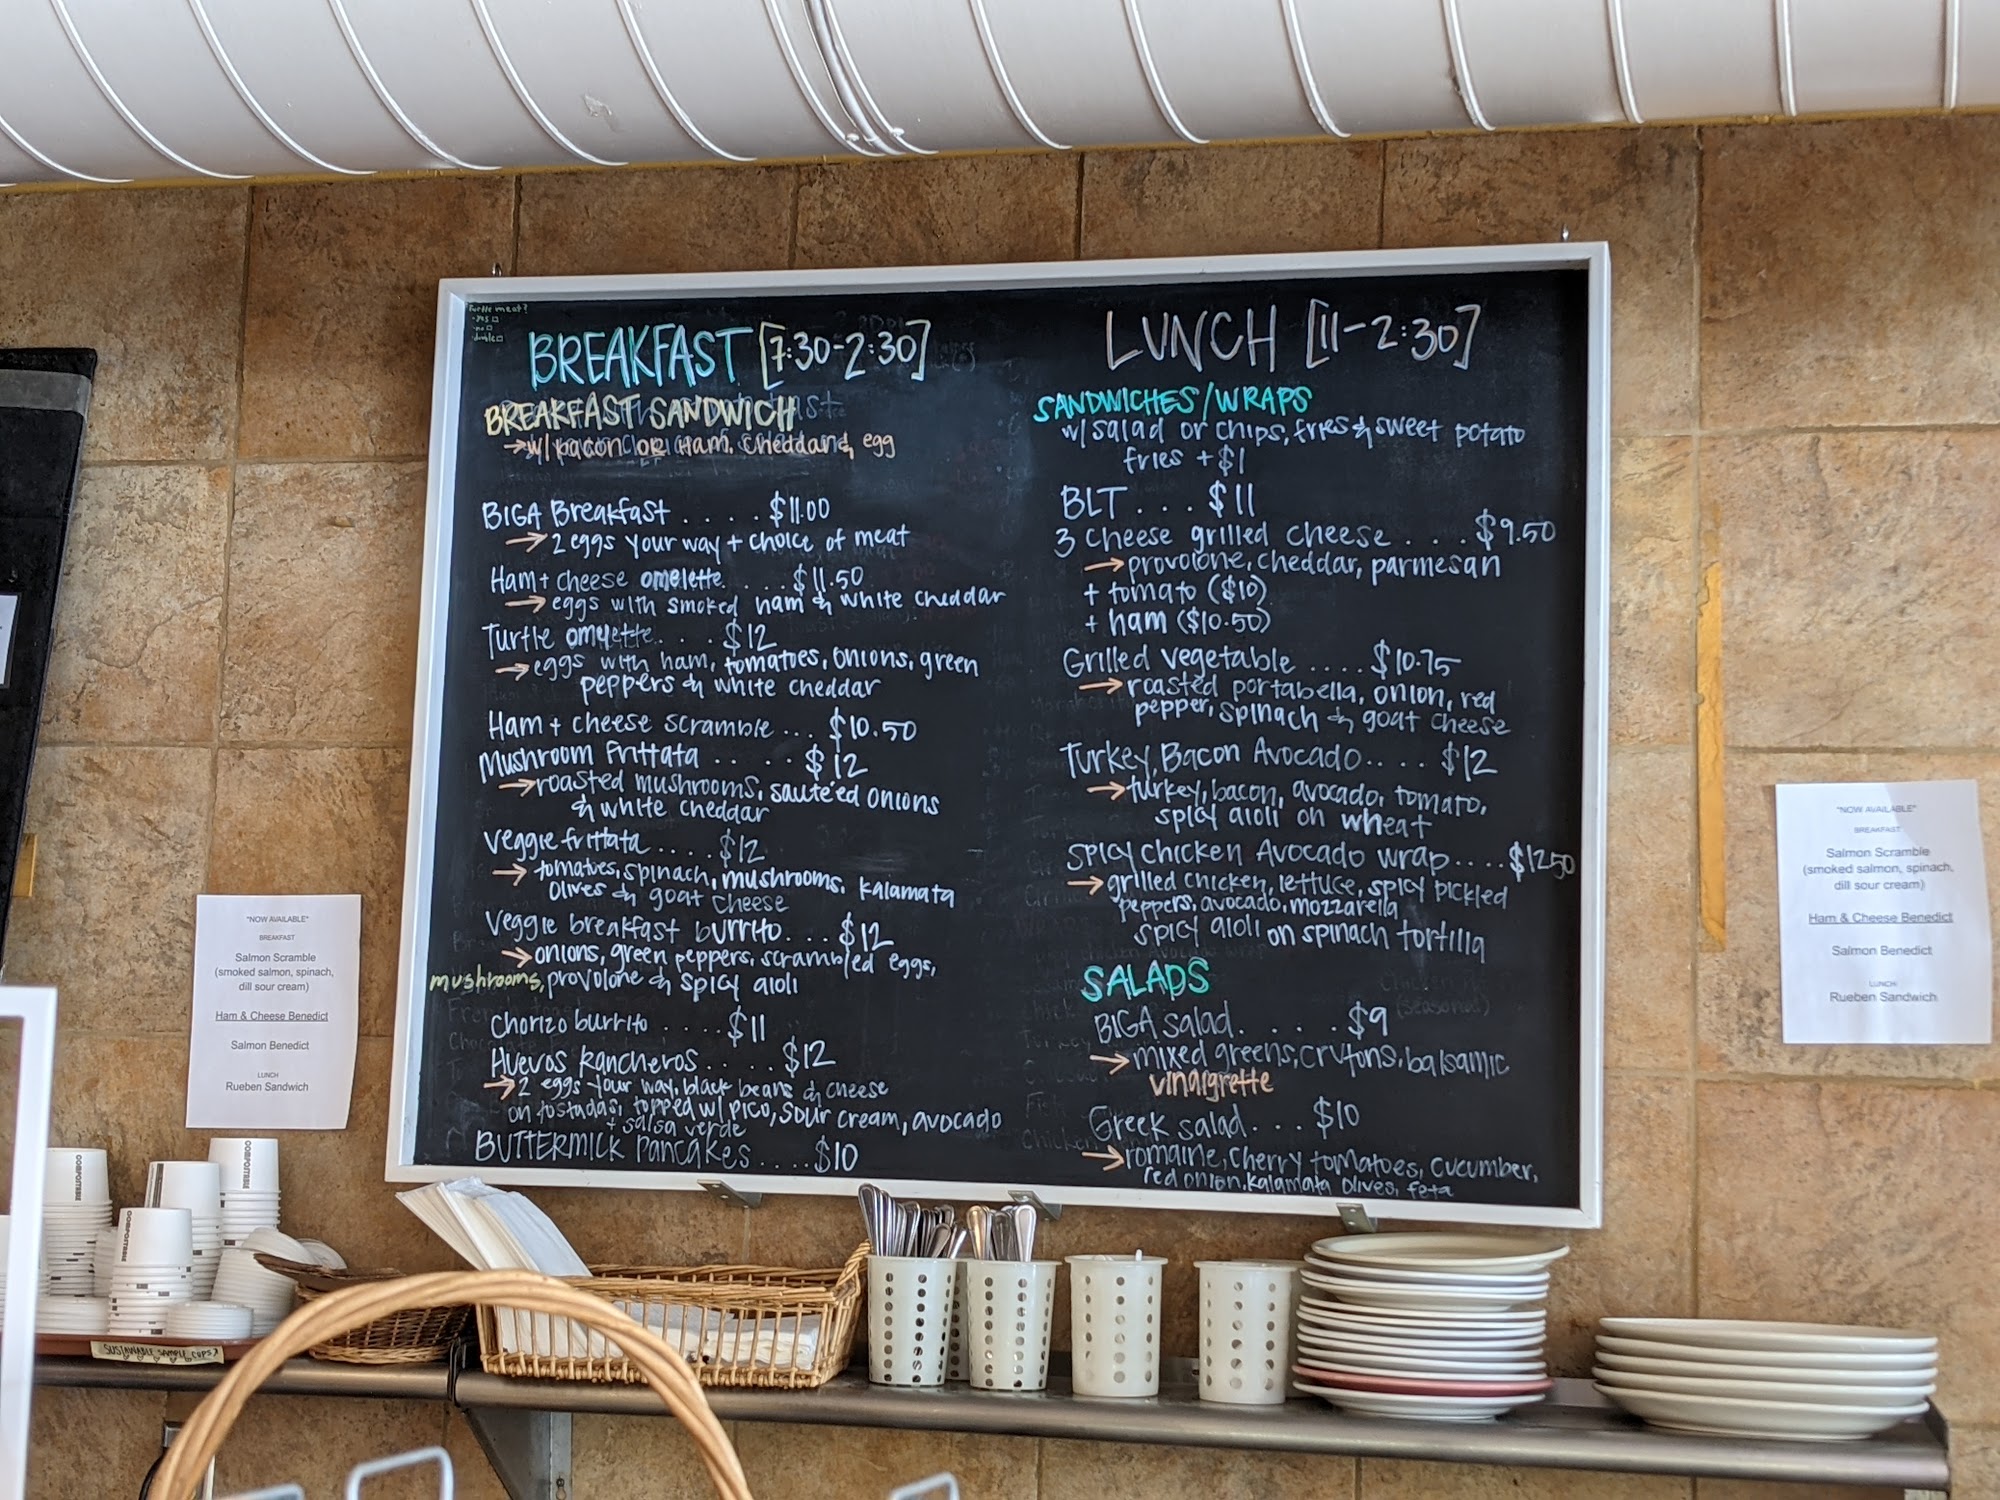 Turtle meat?
-yes □
-no □
BREAKFAST [7:30-2:30]
BREAKFAST SANDWICH
→ w/ bacon OR Ham, cheddar & egg
BIGA Breakfast . . . . $11.00
→ 2 eggs your way + choice of meat
Ham + cheese omelette. . . . $11.50
→ eggs with smoked ham & white cheddar
Turtle omelette. . . $12
→ eggs with ham, tomatoes, onions, green
peppers & white cheddar
Ham + cheese scramble ... $10.50
Mushroom Frittata .. . . . $12
→ roasted mushrooms, saute'ed onions
& white cheddar
Veggie frittata .... $12
→ tomatoes, spinach, mushrooms, kalamata
olives & goat cheese
Veggie breakfast burrito. . . $12
→ onions, green peppers, scrambled eggs,
mushrooms, provolone & spicy aioli
Chorizo burrito . . . . $11
Huevos Rancheros . . . . $12
→ 2 eggs your way, black beans & cheese
on tostadas, topped w/ pico, sour cream, avocado
+ salsa verde
BUTTERMILK Pancakes . . . . $10
LUNCH [11-2:30]
SANDWICHES/WRAPS
w/ salad or chips, fries & sweet potato
fries + $1
BLT . . . $11
3 cheese grilled cheese . . . $9.50
→ provolone, cheddar, parmesan
+ tomato ($10)
+ ham ($10.50)
Grilled vegetable .... $10.75
→ roasted portabella, onion, red
pepper, spinach & goat cheese
Turkey, Bacon Avocado.... $12
→ turkey, bacon, avocado, tomato,
spicy aioli on wheat
Spicy Chicken Avocado wrap.... $12.50
→ grilled chicken, lettuce, spicy pickled
peppers, avocado, mozzarella
spicy aioli on spinach tortilla
SALADS
BIGA salad. . . . . $9
→ mixed greens, crutons, balsamic
vinaigrette
Greek salad. . . $10
→ romaine, cherry tomatoes, cucumber,
red onion, kalamata olives, feta
*NOW AVAILABLE*
BREAKFAST
Salmon Scramble
(smoked salmon, spinach,
dill sour cream)
Ham & Cheese Benedict
Salmon Benedict
LUNCH
Rueben Sandwich
*NOW AVAILABLE*
BREAKFAST
Salmon Scramble
(smoked salmon, spinach,
dill sour cream)
Ham & Cheese Benedict
Salmon Benedict
LUNCH
Rueben Sandwich
COMPOSTABLE
COMPOSTABLE
COMPOSTABLE
SUSTAINABLE SAMPLE CUPS